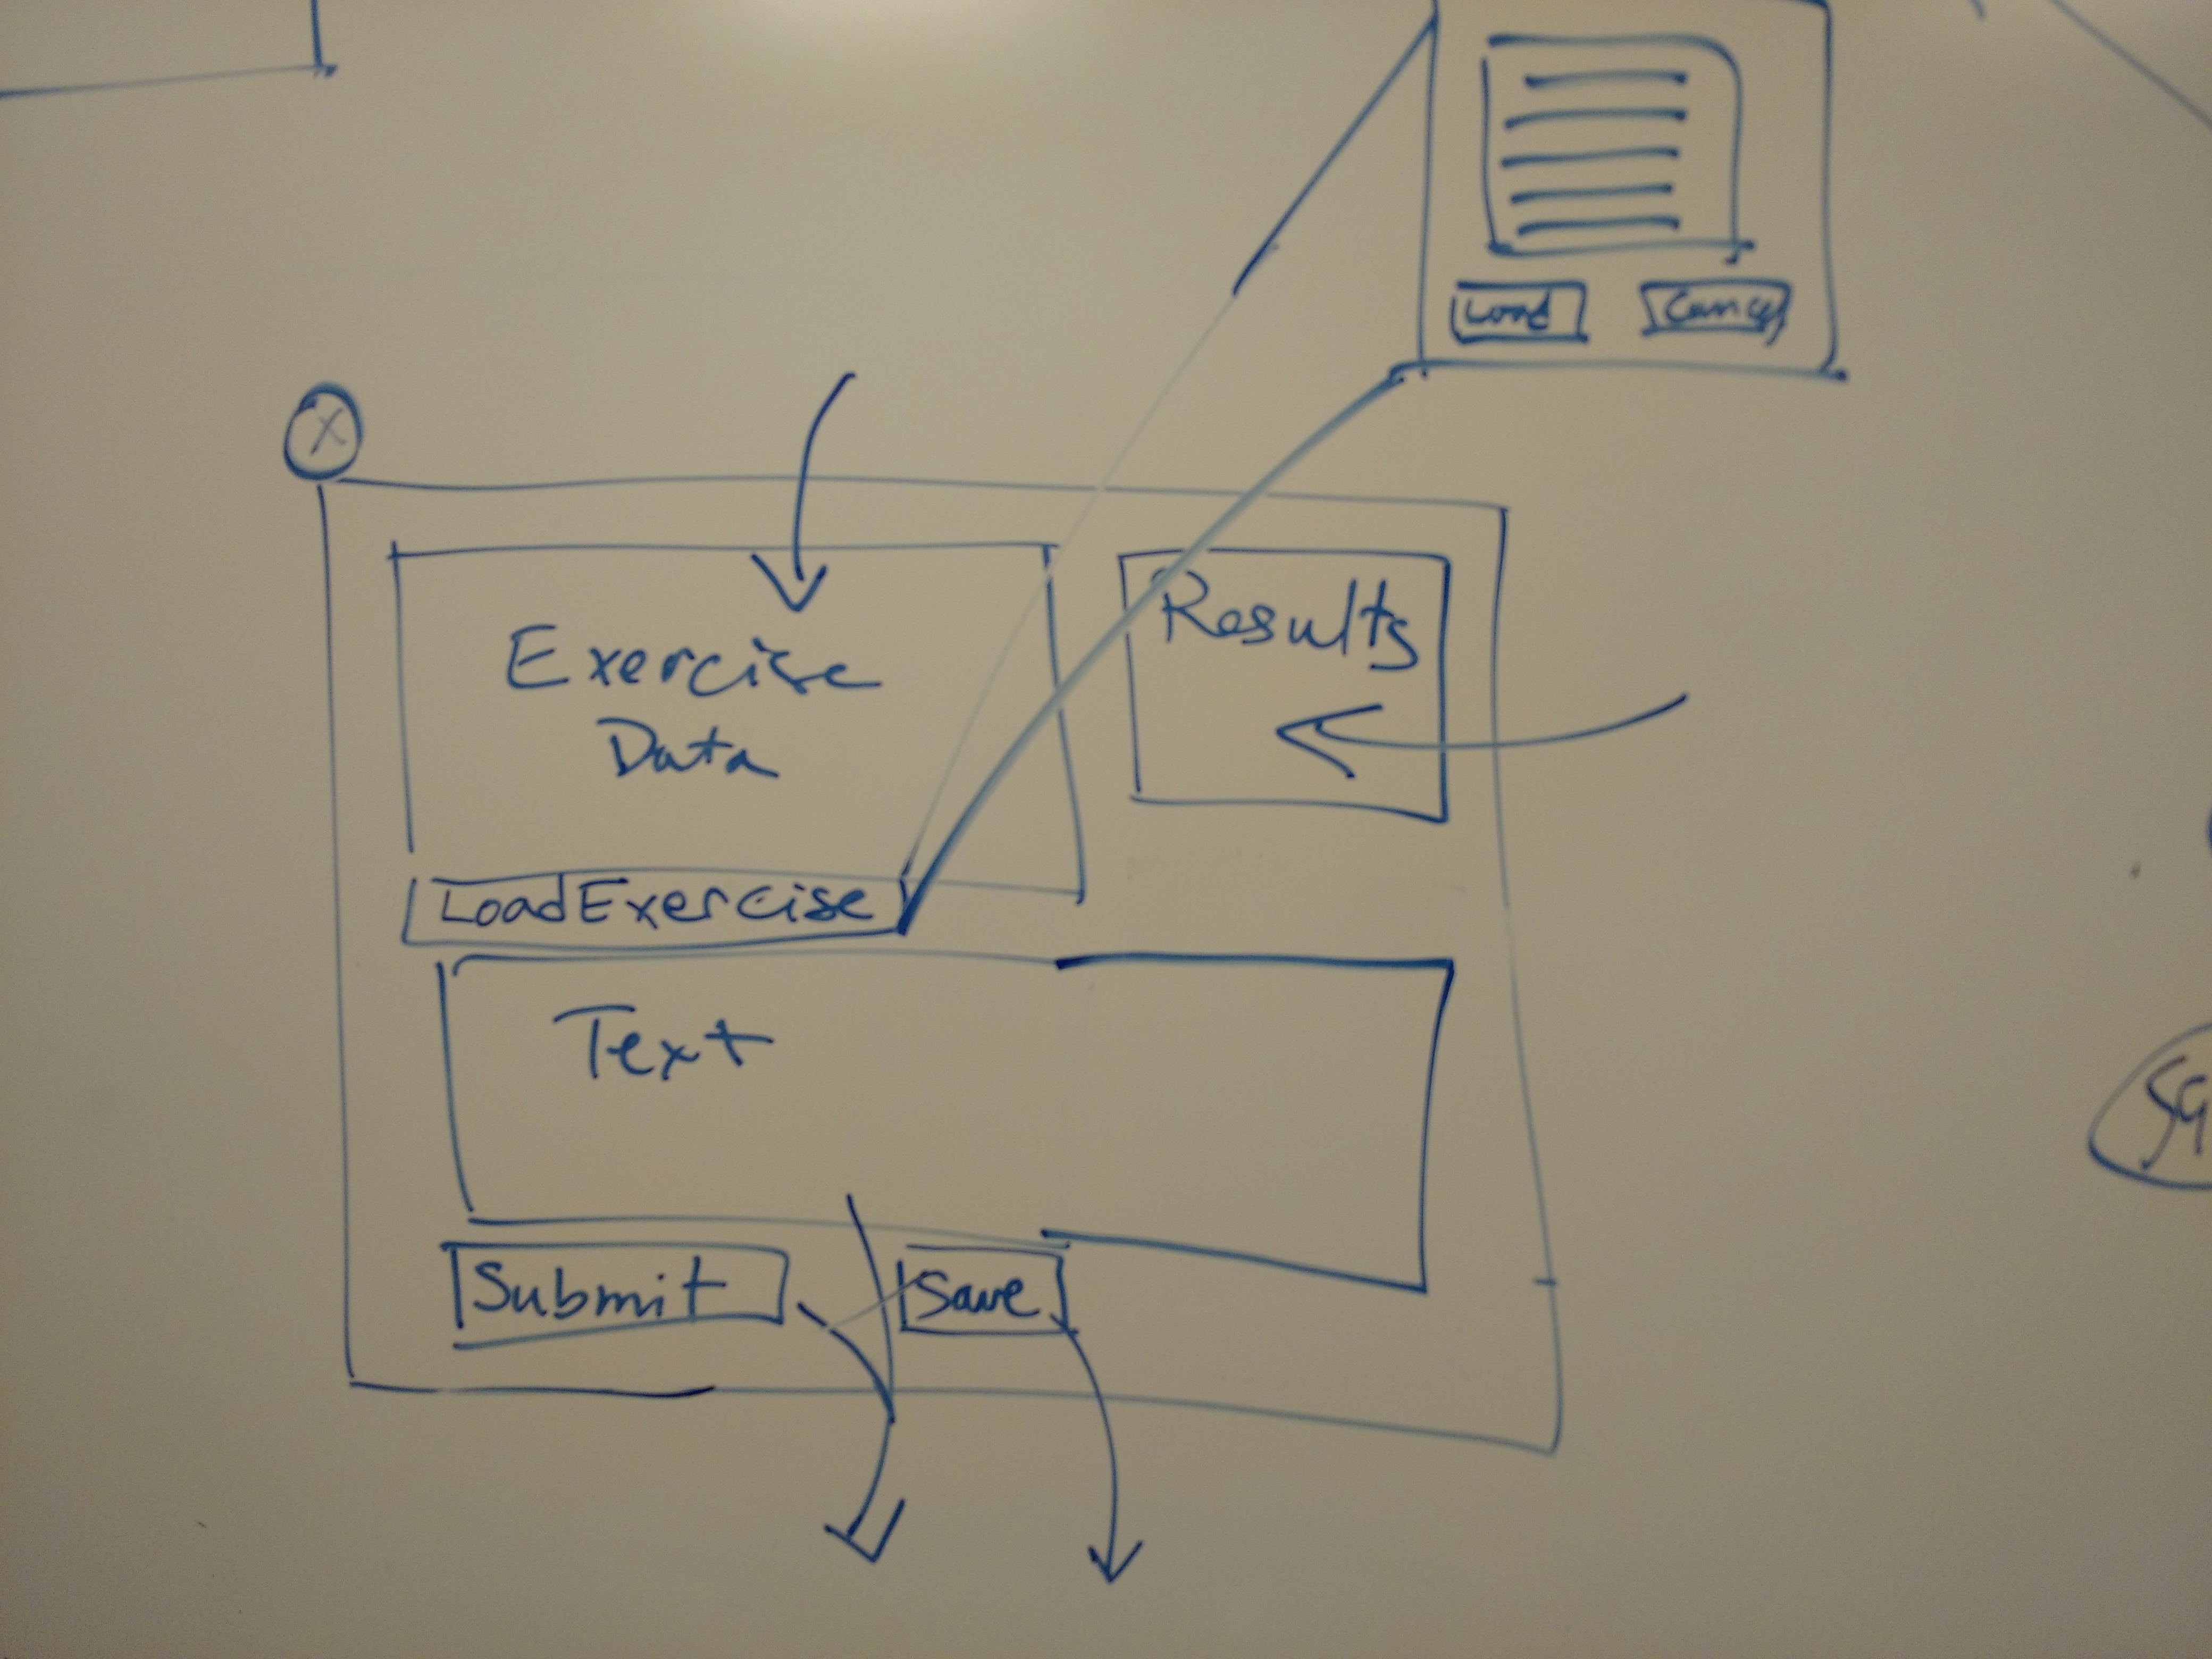 Load Cancel
X
Exercise
Data
Results
LoadExercise
Text
Submit Save